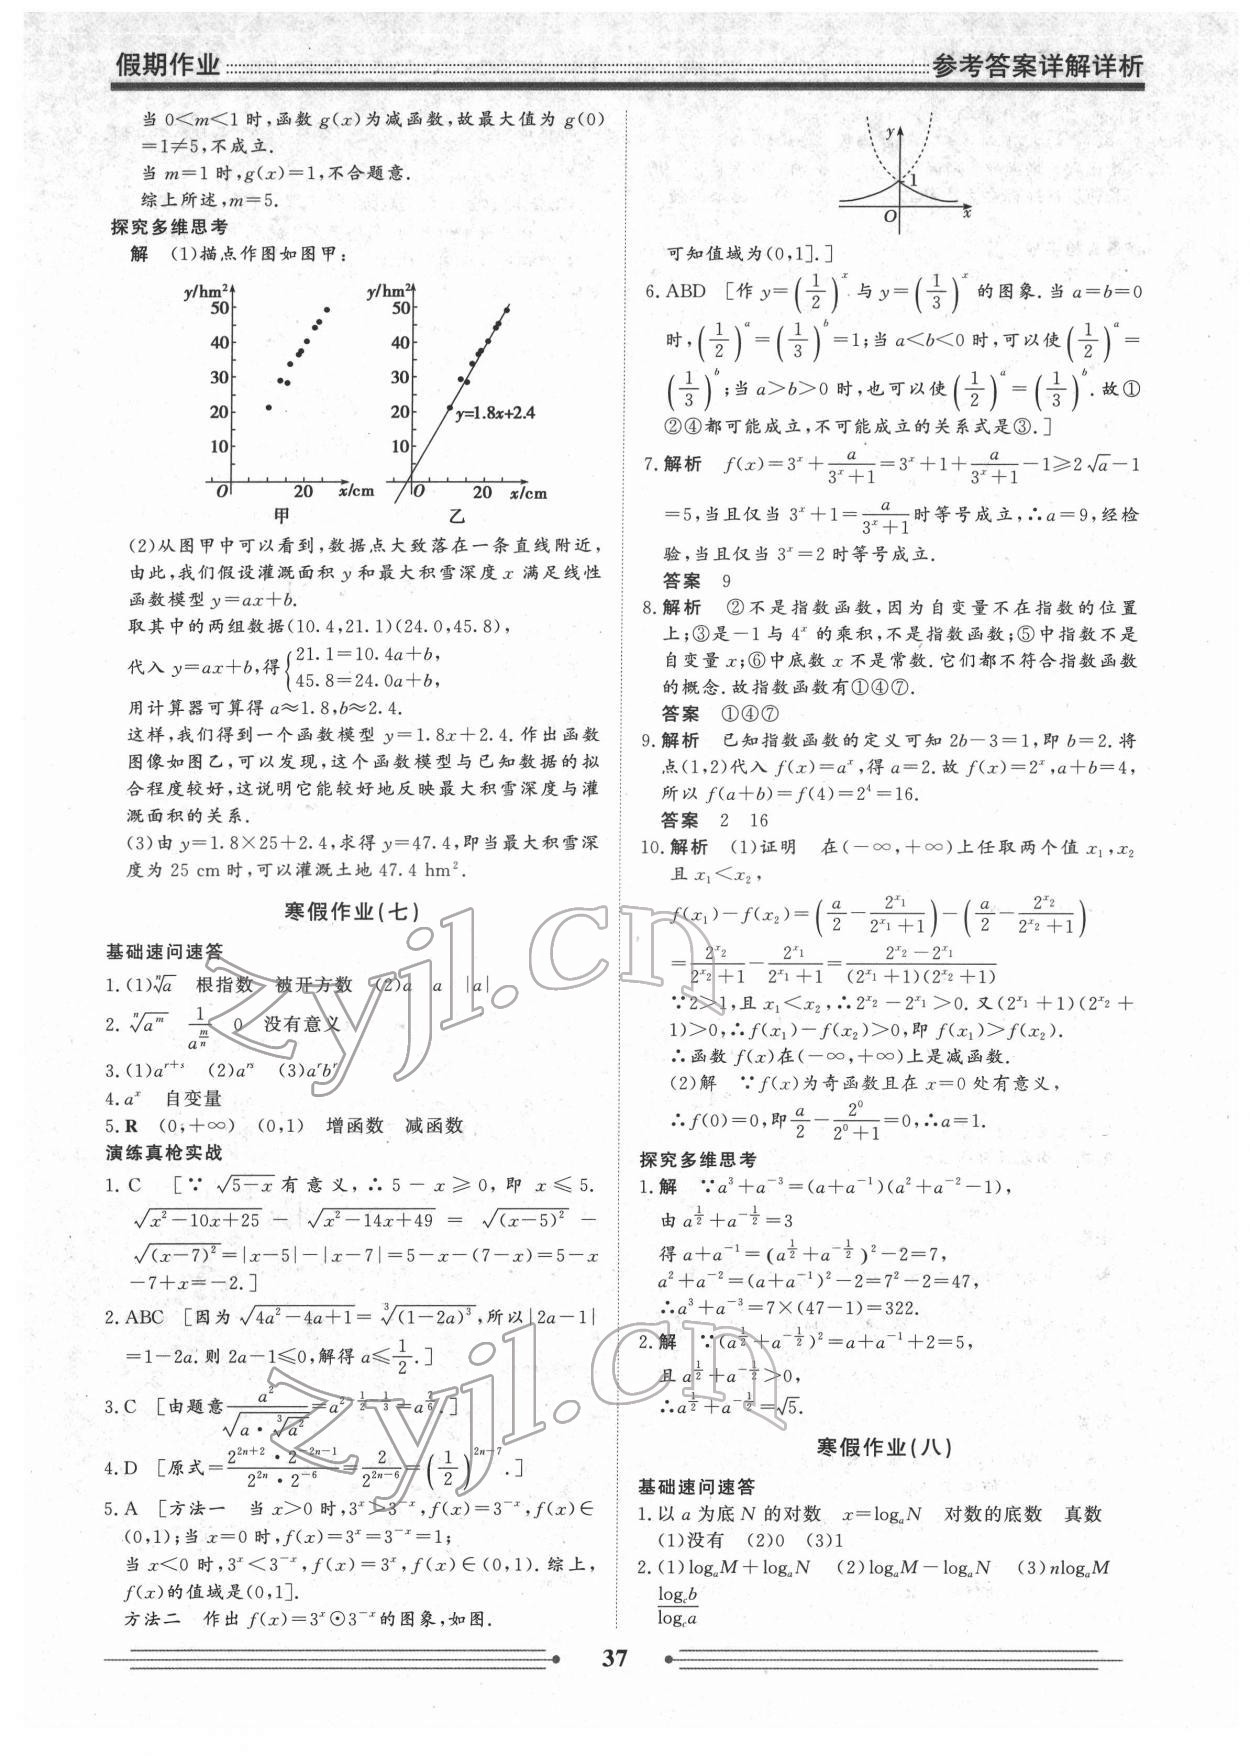 假期作业 参考答案详解详析
当 0<m<1 时,函数 g(x)为减函数,故最大值为 g(0)
=1≠5,不成立.
当 m=1 时,g(x)=1,不合题意.
综上所述,m=5.
探究多维思考
解 (1)描点作图如图甲:
y/hm² 50 40 30 20 10 O 20 x/cm 甲
y/hm² 50 40 30 20 10 O 20 x/cm y=1.8x+2.4 乙
(2)从图甲中可以看到,数据点大致落在一条直线附近,
由此,我们假设灌溉面积 y 和最大积雪深度 x 满足线性
函数模型 y=ax+b.
取其中的两组数据(10.4,21.1)(24.0,45.8),
代入 y=ax+b,得{21.1=10.4a+b,
45.8=24.0a+b,
用计算器可算得 a≈1.8,b≈2.4.
这样,我们得到一个函数模型 y=1.8x+2.4.作出函数
图像如图乙,可以发现,这个函数模型与已知数据的拟
合程度较好,这说明它能较好地反映最大积雪深度与灌
溉面积的关系.
(3)由 y=1.8×25+2.4,求得 y=47.4,即当最大积雪深
度为 25 cm 时,可以灌溉土地 47.4 hm².
寒假作业(七)
基础速问速答
1.(1)ⁿ√a 根指数 被开方数 (2)a a |a|
2.ⁿ√(a^m) 1/a^(m/n) 0 没有意义
3.(1)a^(r+s) (2)a^(rs) (3)a^r b^r
4.a^x 自变量
5.R (0,+∞) (0,1) 增函数 减函数
演练真枪实战
1.C [∵ √(5−x) 有意义,∴ 5−x≥0,即 x≤5.
√(x²−10x+25) − √(x²−14x+49) = √((x−5)²) −
√((x−7)²)=|x−5|−|x−7|=5−x−(7−x)=5−x
−7+x=−2.]
2.ABC [因为√(4a²−4a+1)=³√((1−2a)³),所以|2a−1|
=1−2a.则 2a−1≤0,解得 a≤1/2.]
3.C [由题意 a²/√(a·³√(a²))=a^(2−1/2−1/3)=a^(7/6).]
4.D [原式=(2^(2n+2)·2^(−2n−1))/(2^(2n)·2^(−6))=2/2^(2n−6)=(1/2)^(2n−7).]
5.A [方法一 当 x>0 时,3^x>3^(−x),f(x)=3^(−x),f(x)∈
(0,1);当 x=0 时,f(x)=3^x=3^(−x)=1;
当 x<0 时,3^x<3^(−x),f(x)=3^x,f(x)∈(0,1).综上,
f(x)的值域是(0,1].
方法二 作出 f(x)=3^x⊙3^(−x)的图象,如图.
y 1 O x
可知值域为(0,1].]
6.ABD [作 y=(1/2)^x 与 y=(1/3)^x 的图象.当 a=b=0
时,(1/2)^a=(1/3)^b=1;当 a<b<0 时,可以使(1/2)^a=
(1/3)^b;当 a>b>0 时,也可以使(1/2)^a=(1/3)^b.故①
②④都可能成立,不可能成立的关系式是③.]
7.解析 f(x)=3^x+a/(3^x+1)=3^x+1+a/(3^x+1)−1≥2√a−1
=5,当且仅当 3^x+1=a/(3^x+1)时等号成立,∴a=9,经检
验,当且仅当 3^x=2 时等号成立.
答案 9
8.解析 ②不是指数函数,因为自变量不在指数的位置
上;③是−1与 4^x 的乘积,不是指数函数;⑤中指数不是
自变量 x;⑥中底数 x 不是常数.它们都不符合指数函数
的概念.故指数函数有①④⑦.
答案 ①④⑦
9.解析 已知指数函数的定义可知 2b−3=1,即 b=2.将
点(1,2)代入 f(x)=a^x,得 a=2.故 f(x)=2^x,a+b=4,
所以 f(a+b)=f(4)=2⁴=16.
答案 2 16
10.解析 (1)证明 在(−∞,+∞)上任取两个值 x₁,x₂
且 x₁<x₂,
f(x₁)−f(x₂)=(a/2−2^(x₁)/(2^(x₁)+1))−(a/2−2^(x₂)/(2^(x₂)+1))
=2^(x₂)/(2^(x₂)+1)−2^(x₁)/(2^(x₁)+1)=(2^(x₂)−2^(x₁))/((2^(x₁)+1)(2^(x₂)+1))
∵2>1,且 x₁<x₂,∴2^(x₂)−2^(x₁)>0.又(2^(x₁)+1)(2^(x₂)+
1)>0,∴f(x₁)−f(x₂)>0,即 f(x₁)>f(x₂).
∴函数 f(x)在(−∞,+∞)上是减函数.
(2)解 ∵f(x)为奇函数且在 x=0 处有意义,
∴f(0)=0,即a/2−2⁰/(2⁰+1)=0,∴a=1.
探究多维思考
1.解 ∵a³+a⁻³=(a+a⁻¹)(a²+a⁻²−1),
由 a^(1/2)+a^(−1/2)=3
得 a+a⁻¹=(a^(1/2)+a^(−1/2))²−2=7,
a²+a⁻²=(a+a⁻¹)²−2=7²−2=47,
∴a³+a⁻³=7×(47−1)=322.
2.解 ∵(a^(1/2)+a^(−1/2))²=a+a⁻¹+2=5,
且 a^(1/2)+a^(−1/2)>0,
∴a^(1/2)+a^(−1/2)=√5.
寒假作业(八)
基础速问速答
1.以 a 为底 N 的对数 x=logₐN 对数的底数 真数
(1)没有 (2)0 (3)1
2.(1)logₐM+logₐN (2)logₐM−logₐN (3)nlogₐM
log_c b/log_c a
37
zyjl.cn
zyjl.cn